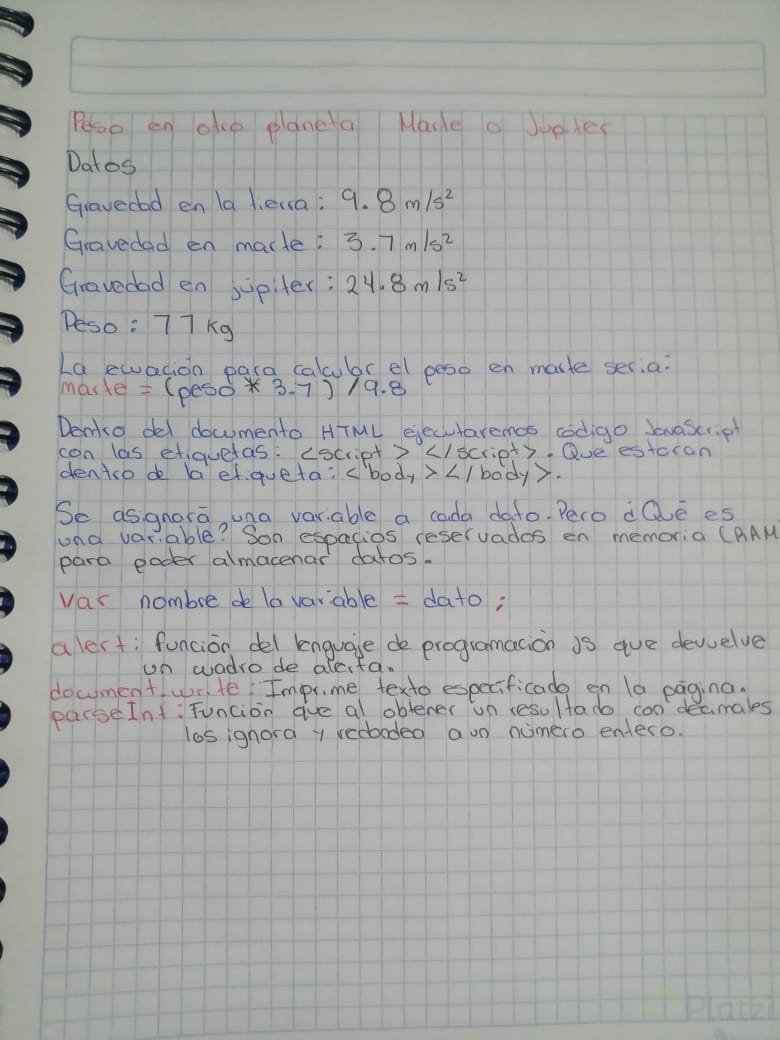 Peso en otro planeta Marte o Jupiter
Datos
Gravedad en la tierra: 9.8 m/s²
Gravedad en marte: 3.7 m/s²
Gravedad en júpiter: 24.8 m/s²
Peso: 77 kg
La ecuación para calcular el peso en marte seria:
marte = (peso * 3.7) / 9.8
Dentro del documento HTML ejecutaremos código JavaScript
con las etiquetas: <script> </script>. Que estaran
dentro de la etiqueta: <body></body>.
Se asignará una variable a cada dato. Pero ¿Qué es
una variable? Son espacios reservados en memoria (RAM
para poder almacenar datos.
Var nombre de la variable = dato;
alert: función del lenguaje de programación JS que devuelve
un cuadro de alerta.
document.write: Imprime texto especificado en la página.
parseInt: Función que al obtener un resultado con decimales
los ignora y redondea a un número entero.
Platzi